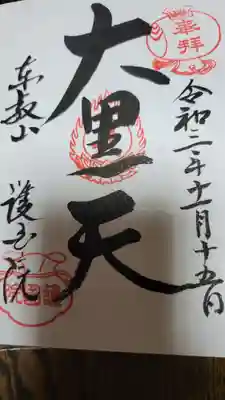 奉拝
令和二年十一月十五日
大黒天
東叡山
護国院